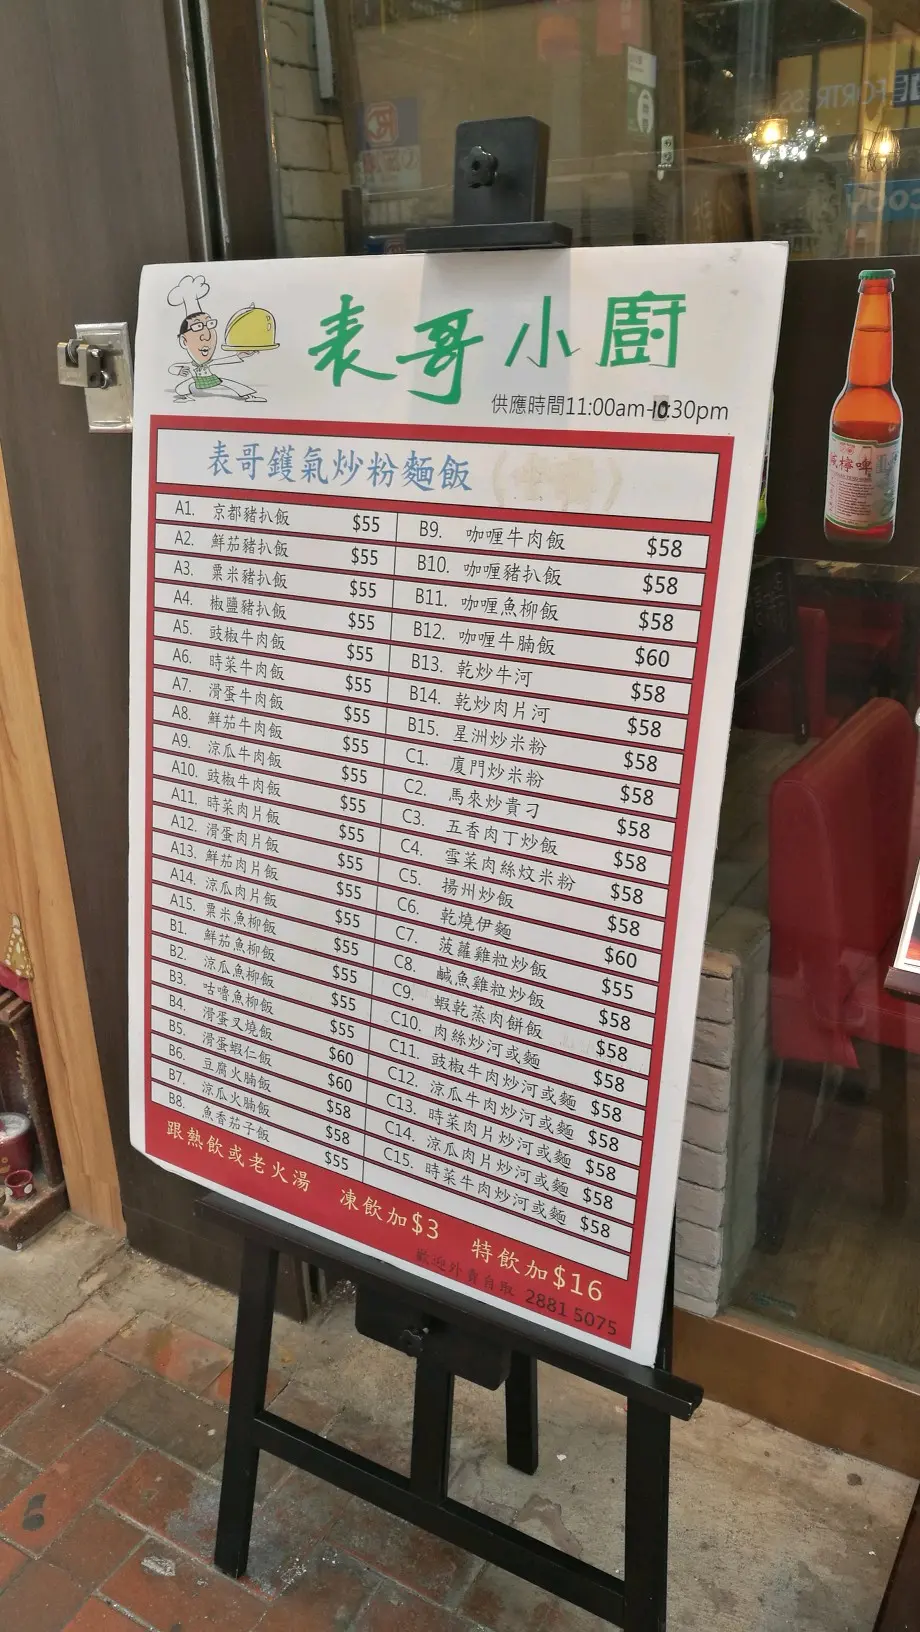 表哥小廚
供應時間11:00am-10:30pm
表哥鑊氣炒粉麵飯
A1. 京都豬扒飯 $55
A2. 鮮茄豬扒飯 $55
A3. 粟米豬扒飯 $55
A4. 椒鹽豬扒飯 $55
A5. 豉椒牛肉飯 $55
A6. 時菜牛肉飯 $55
A7. 滑蛋牛肉飯 $55
A8. 鮮茄牛肉飯 $55
A9. 涼瓜牛肉飯 $55
A10. 豉椒牛肉飯 $55
A11. 時菜肉片飯 $55
A12. 滑蛋肉片飯 $55
A13. 鮮茄肉片飯 $55
A14. 涼瓜肉片飯 $55
A15. 粟米魚柳飯 $55
B1. 鮮茄魚柳飯 $55
B2. 涼瓜魚柳飯 $55
B3. 咕嚕魚柳飯 $55
B4. 滑蛋叉燒飯 $60
B5. 滑蛋蝦仁飯 $60
B6. 豆腐火腩飯 $58
B7. 涼瓜火腩飯 $58
B8. 魚香茄子飯 $55
B9. 咖喱牛肉飯 $58
B10. 咖喱豬扒飯 $58
B11. 咖喱魚柳飯 $58
B12. 咖喱牛腩飯 $60
B13. 乾炒牛河 $58
B14. 乾炒肉片河 $58
B15. 星洲炒米粉 $58
C1. 廈門炒米粉 $58
C2. 馬來炒貴刁 $58
C3. 五香肉丁炒飯 $58
C4. 雪菜肉絲炆米粉 $58
C5. 揚州炒飯 $58
C6. 乾燒伊麵 $60
C7. 菠蘿雞粒炒飯 $55
C8. 鹹魚雞粒炒飯 $58
C9. 蝦乾蒸肉餅飯 $58
C10. 肉絲炒河或麵 $58
C11. 豉椒牛肉炒河或麵 $58
C12. 涼瓜牛肉炒河或麵 $58
C13. 時菜肉片炒河或麵 $58
C14. 涼瓜肉片炒河或麵 $58
C15. 時菜牛肉炒河或麵 $58
跟熱飲或老火湯 凍飲加$3 特飲加$16
歡迎外賣自取 2881 5075
鹹檸啤
FORTRESS